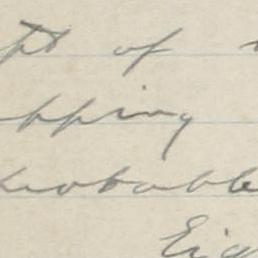 pt of
pping
probable
Eig